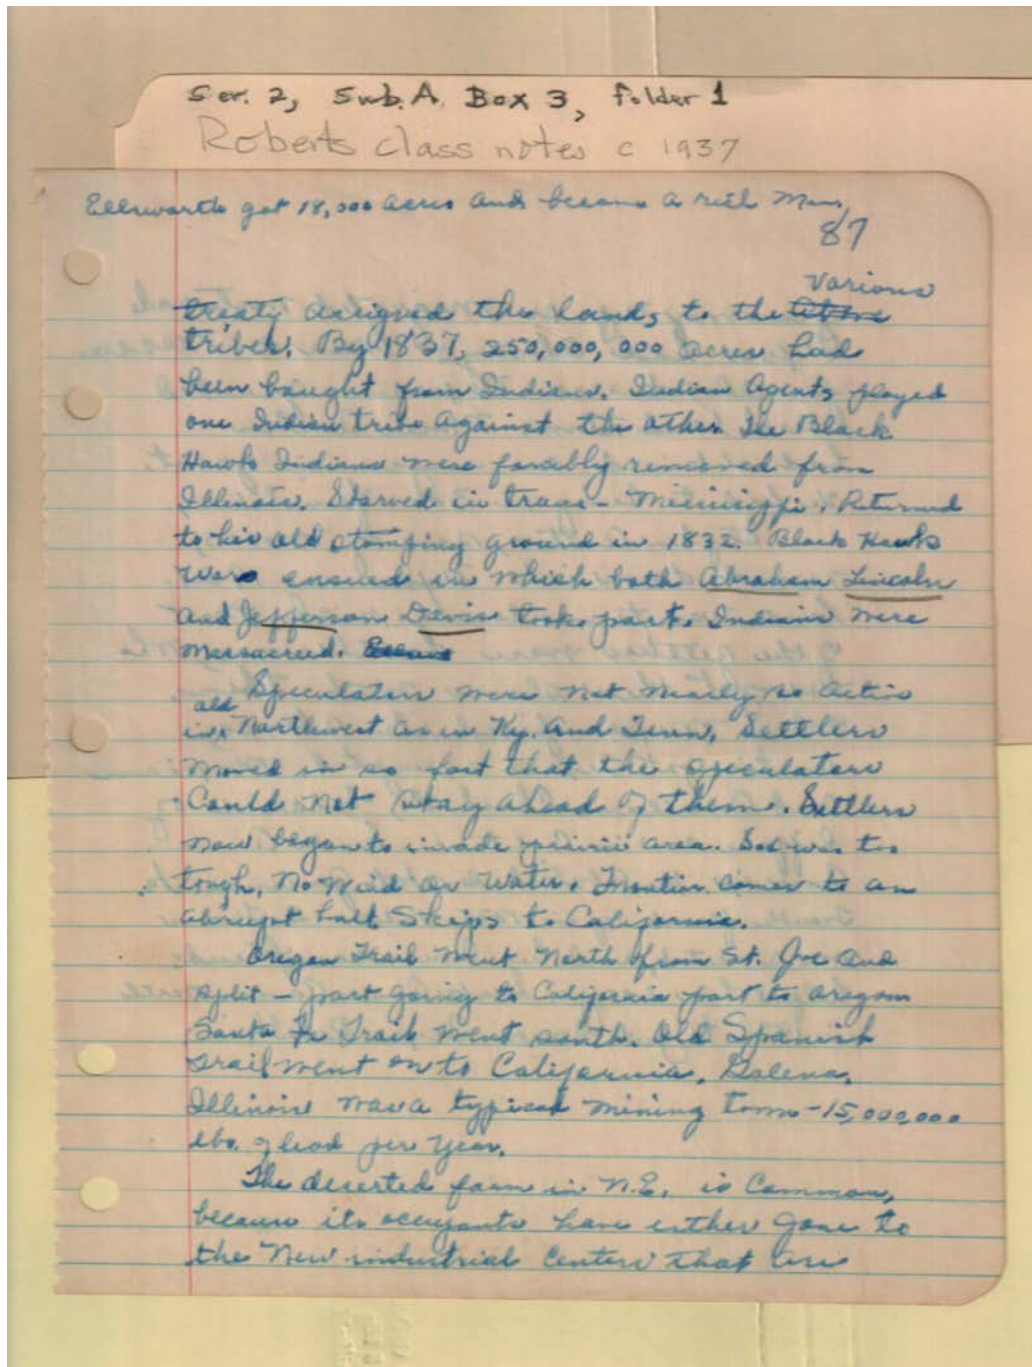 Ser. 2, Sub. A. Box 3, folder 1
Roberts class notes c 1937
Ellsworth got 18,000 acres and became a rich man.
87
various
treaty assigned the lands to the
tribes. By 1837, 250,000,000 acres had
been bought from Indians. Indian Agents played
one Indian tribe against the other. The Black
Hawks Indians were forcibly removed from
Illinois. Starved in trans-Mississippi. Returned
to his old stomping ground in 1832. Black Hawks
War ensued in which both Abraham Lincoln
and Jefferson Davis took part. Indians were
massacred.
Speculators were not nearly so active
in old Northwest as in Ky. and Tenn. Settlers
moved in so fast that the speculators
could not stay ahead of them. Settlers
now began to invade prairie area. Sod was too
tough, no wind or water. Frontier comes to an
abrupt halt. Skips to California.
Oregon Trail went North from St. Joe and
split - part going to California part to Oregon
Santa Fe Trail went south. Old Spanish
Trail went on to California. Galena,
Illinois was a typical mining town - 15,000,000
lbs. of lead per year.
The deserted farm in N.E. is common,
because its occupants have either gone to
the new industrial centers that are